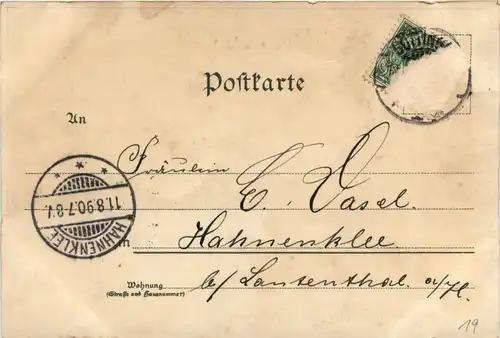 Postkarte
An
Fräulein
E. Dasel.
in
Hahnenklee
b/ Lautenthal a/H.
Wohnung
(Straße und Hausnummer)
HAHNENKLEE
11.8.90.7-8V.
19